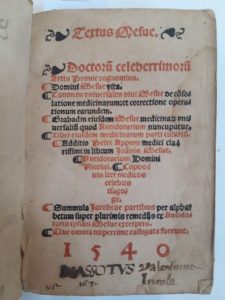 Textus Mesue.
Doctorū celeberrimorū
Artis Peonie cognomina.
Domini Mesue vita.
Canones vniuersales diui Mesue de cōso
latione medicinarum et correctione opera
tionum earundem.
Grabadin eiusdem Mesue medicinarū vni
uersaliū quod Antidotarium nuncupatur.
Liber eiusdem medicinarum parti culariū.
Additio Petri Apponi medici cla
rissimi in librum Joānis Mesue.
Antidotarium Domini
Nicolai. Coppo
nis iter medicos
celebris
isago
ge.
Summula Jacobi de partibus per alpha
betum super plurimis remedijs ex
ipsius Mesue excerptis.
Que omnia nuperrime castigata fuerunt.
1540
NASOTVS